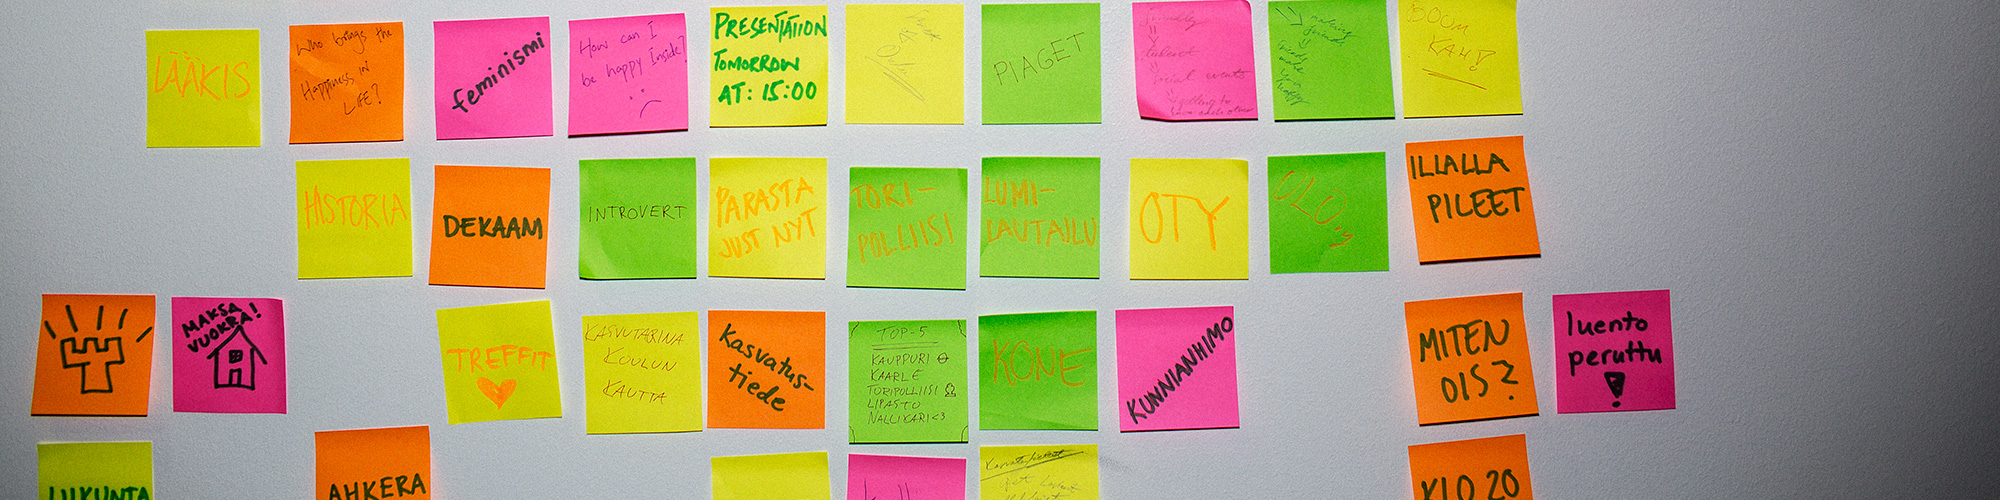 LÄÄKIS
Who brings the
Happiness in
LIFE?
feminismi
How can I
be happy Inside?
PRESENTATION
TOMORROW
AT: 15:00
PIAGET
social events
getting to
making
friends
KAH!
HISTORIA
DEKAAM
INTROVERT
PARASTA
JUST NYT
TORI-
POLLIISI
LUMI-
LAUTAILU
OTY
ILLALLA
PILEET
MAKSA
VUOKRA!
TREFFIT
KASVUTARINA
KOULUN
KAUTTA
Kasvatus-
tiede
TOP-5
KAUPPURI
KAARLE
TORIPOLLIISI
LIPASTO
NALLIKARI <3
KONE
KUNNIANHIMO
MITEN
OIS?
luento
peruttu
!
LIIKUNTA
AHKERA
KLO 20